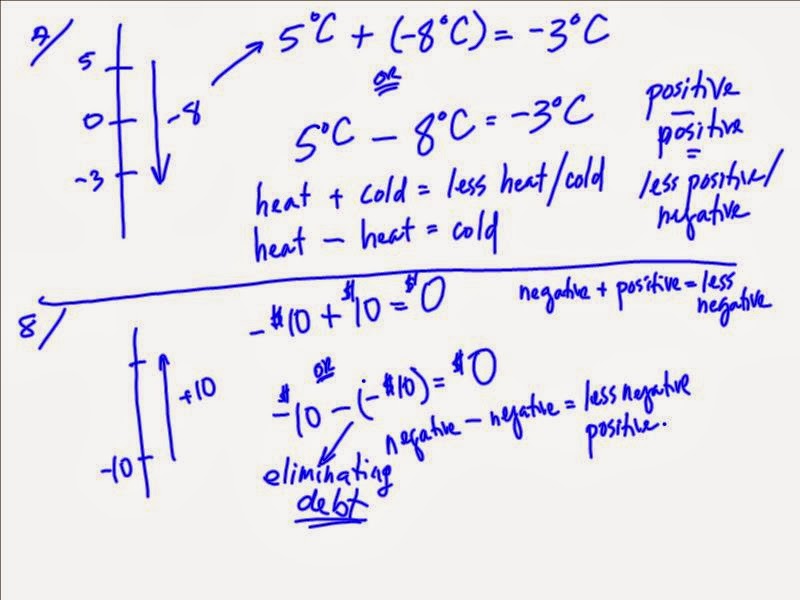 7/
5
0
-3
-8
5°C + (-8°C) = -3°C
OR
5°C - 8°C = -3°C
heat + cold = less heat/cold
heat - heat = cold
positive
-
positive
=
less positive/
negative
8/
-10
+10
-$10 + $10 = $0
OR
-$10 - (-$10) = $0
eliminating
debt
negative + positive = less
negative
negative - negative = less negative
positive.